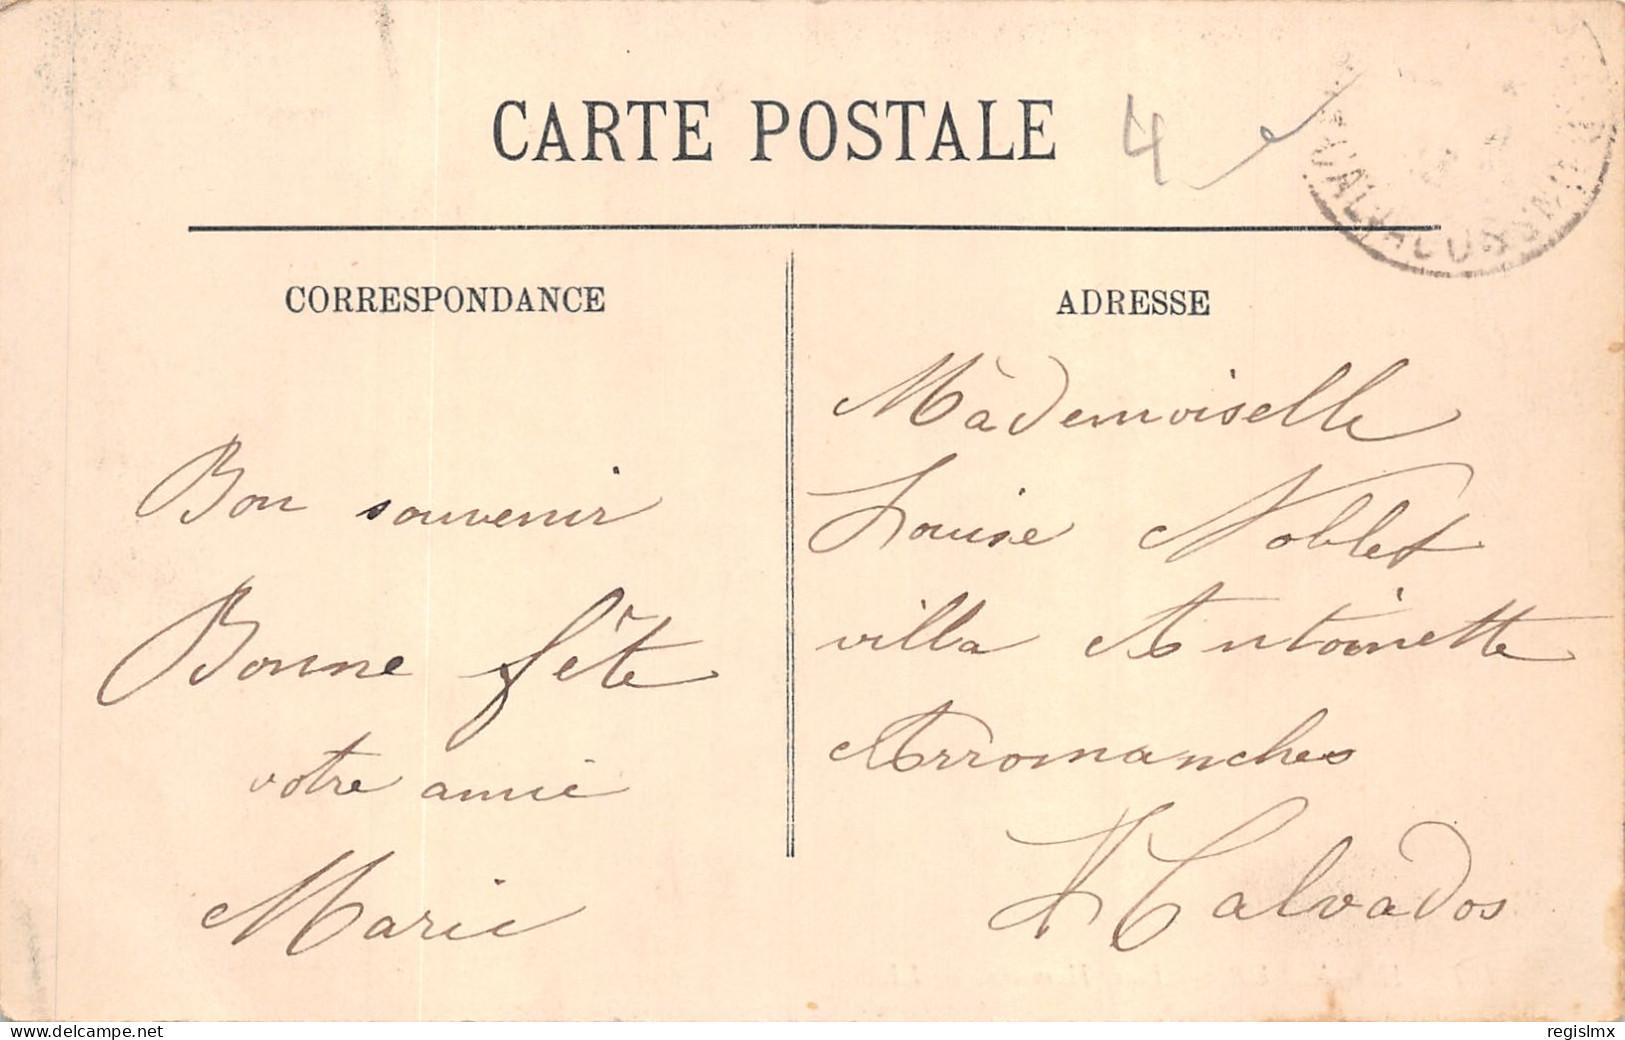 CARTE POSTALE
4
CORRESPONDANCE
Bon souvenir
Bonne fête
votre amie
Marie
ADRESSE
Mademoiselle
Louise Noblet
villa Antoinette
Arromanches
Calvados
www.delcampe.net
regislmx